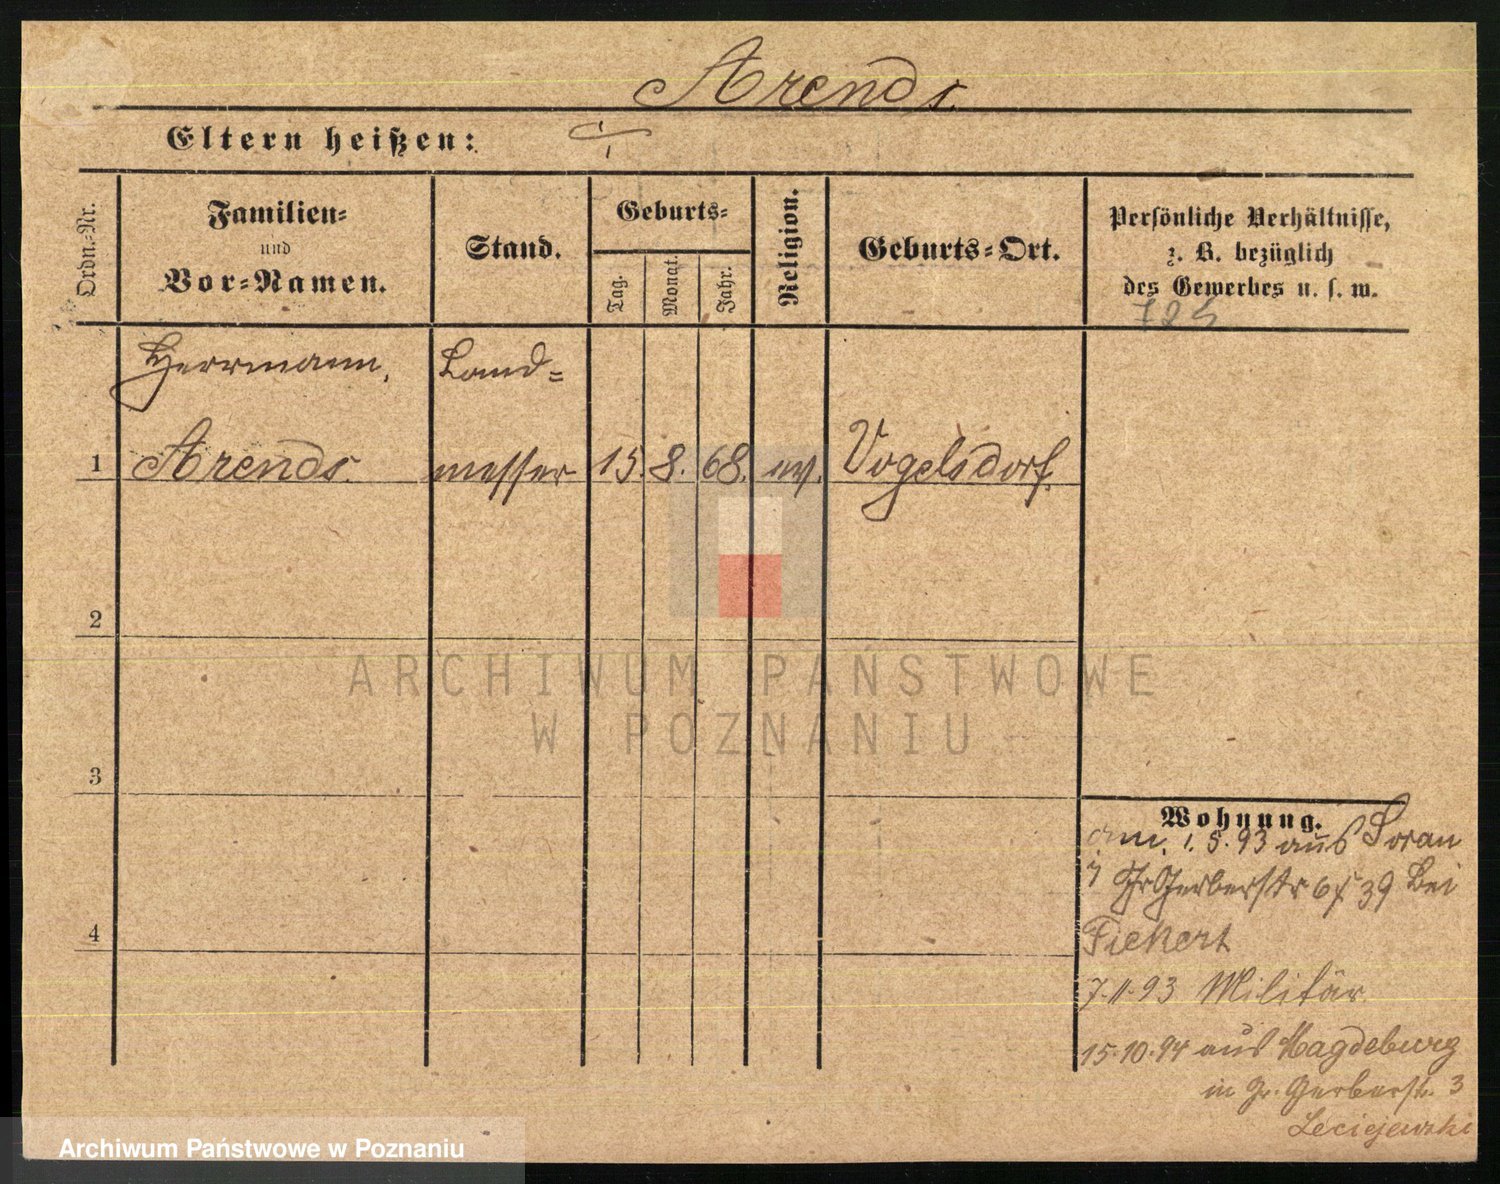 Arends.
Eltern heißen:
Ordn.-Nr.
Familien-
und
Vor-Namen.
Stand.
Geburts-
Tag.
Monat.
Jahr.
Religion.
Geburts-Ort.
Persönliche Verhältnisse,
z. B. bezüglich
des Gewerbes u. s. w.
725
Herrmann, Land-
1 Arends. messer 15. 8. 68. ev. Vogelsdorf.
2
3
4
Wohnung.
am. 1.5.93 aus Soran
Gr Gerberstr 39 bei
Fiekert
7.11.93 Militär
15.10.94 aus Magdeburg
in Gr. Gerberstr. 3
Leciejewski
ARCHIWUM PAŃSTWOWE
W POZNANIU
Archiwum Państwowe w Poznaniu